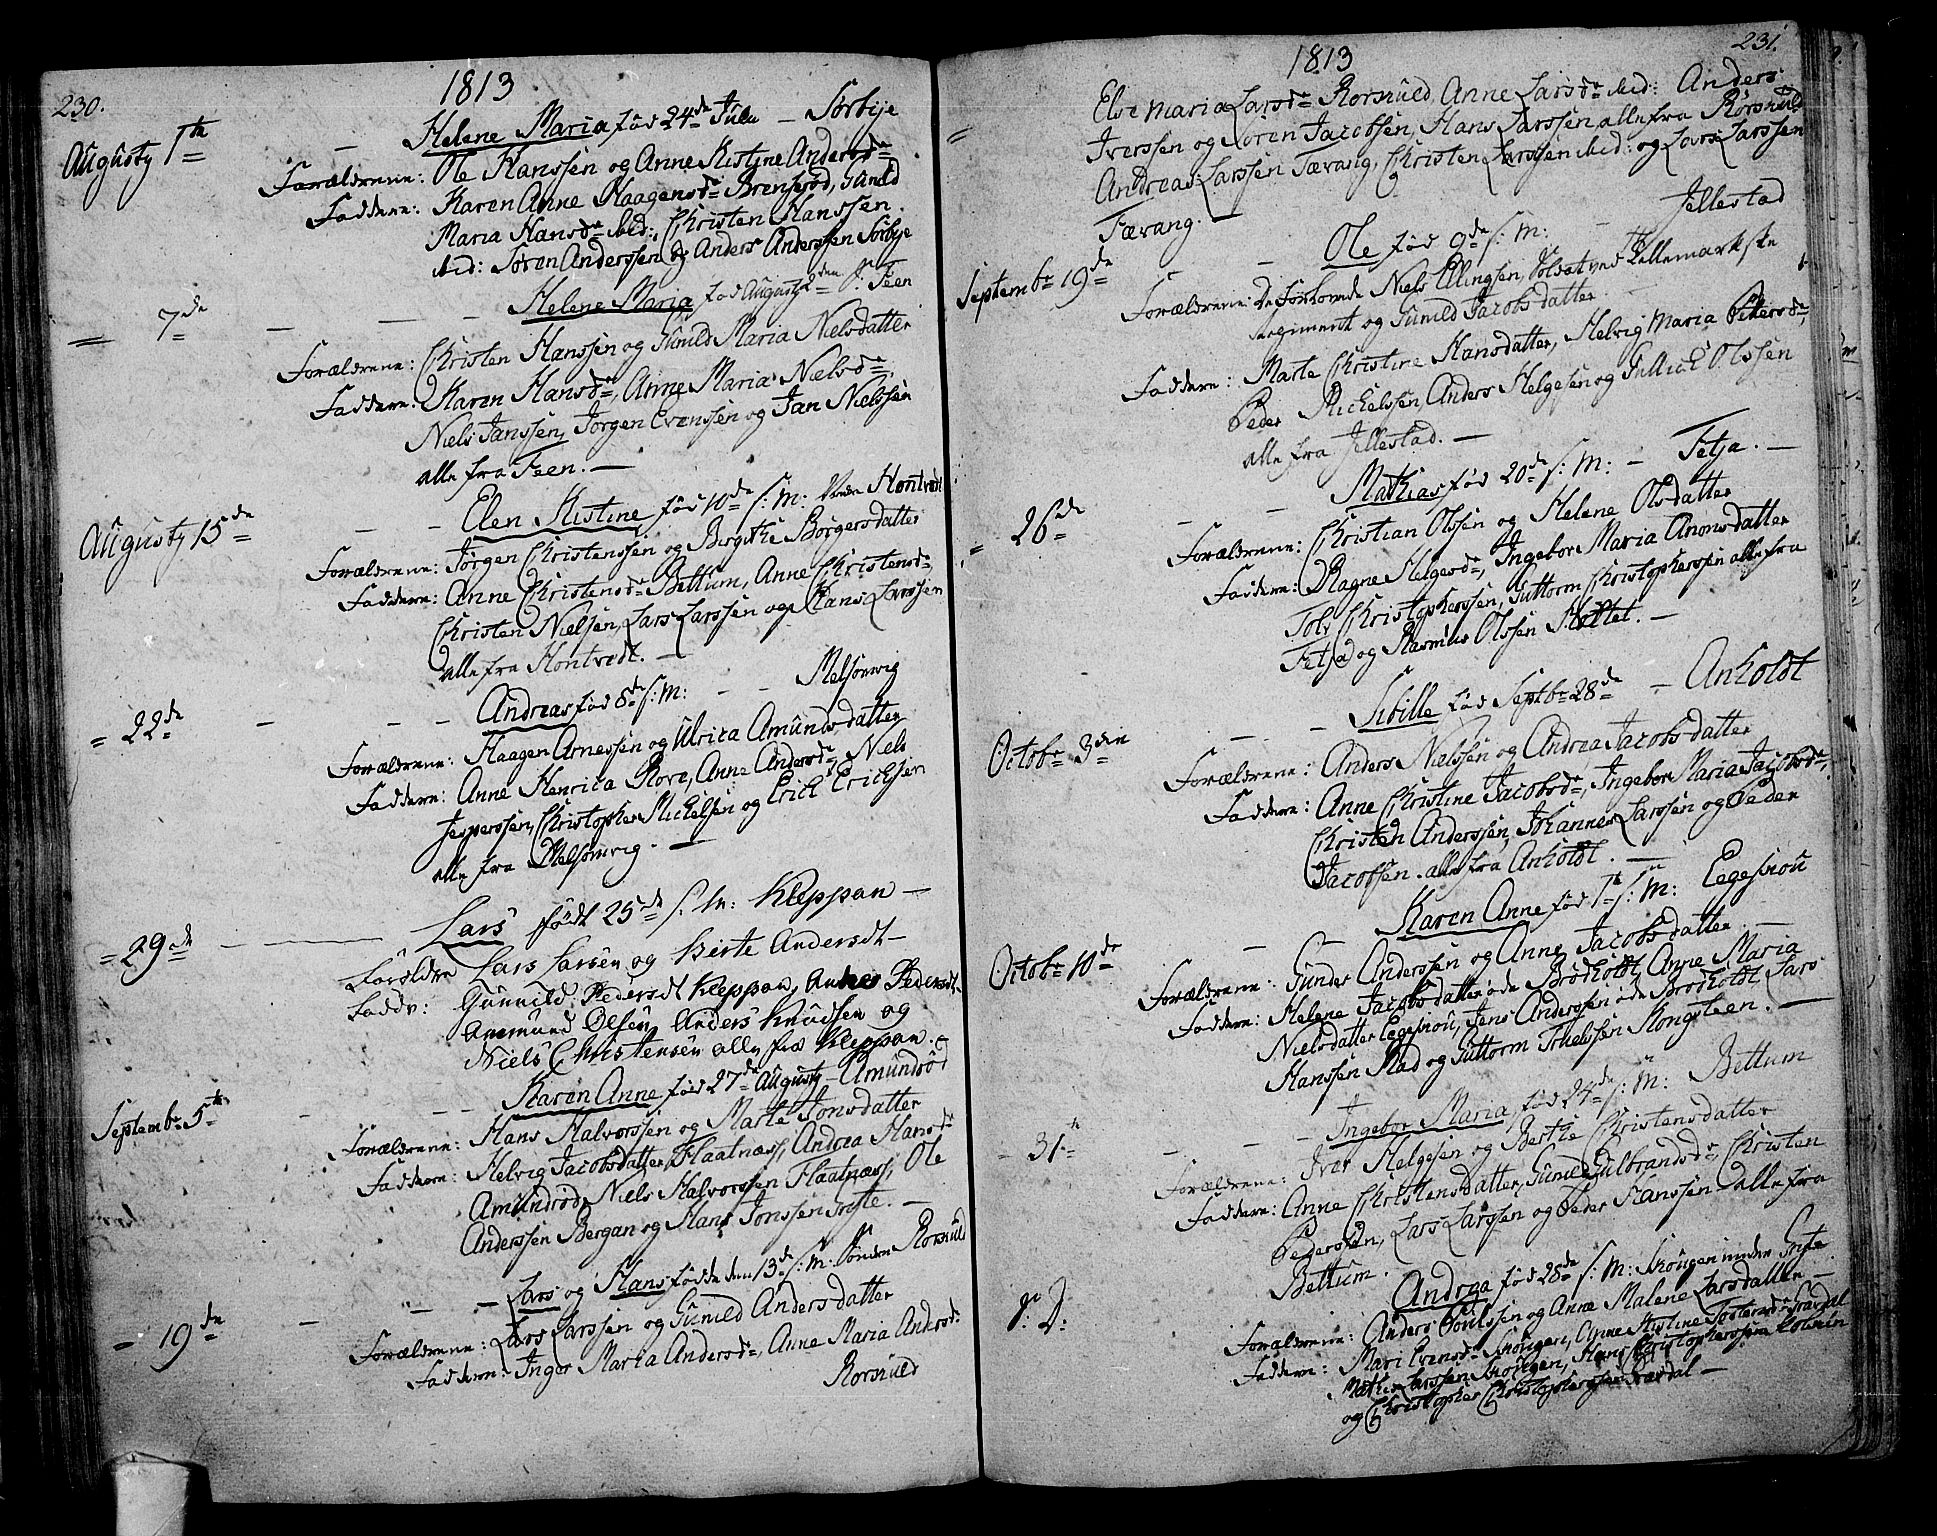 230.
1813
Augusty 1te — Helene Maria fød 24de Julii — Sørbije
Forældrene: Ole Hanssen og Anne Kistine Andersde
Faddere: Karen Anne Haagensde Brenserød, Gunild
Maria Hansde ibid:, Christen Hanssen
ibid: Søren Anderssen og Anders Anderssen Sørbye
— 7de — — — Helene Maria fød Augusty 2den — Feen
Forældrene: Christen Hanssen og Gunild Maria Nielsdatter
Faddere: Karen Hansde, Anne Maria Nielsde,
Niels Janssen, Jørgen Evenssen og Jan Nielssen
alle fra Feen. —
Augusty 15de — — Elen Kistine fød 10de s: M: Hontvedt
Forældrene: Jørgen Christenssen og Birgithe Børgersdatter
Faddere: Anne Christensde Bettum, Anne Christensde,
Christen Nielsen, Lars Larssen og Hans Larssen
alle fra Hontvedt. —
= 22de — — — Andreas fød 8de s: M: — — Melsomvig
Forældrene: Haagen Arnessen og Ulrica Amundsdatter
Faddere: Anne Henrica Rore, Anne Andersde, Niels
Jesperssen, Christopher Mickelsen og Erich Ericksen
alle fra Melsomvig. —
= 29de — Lars født 25de s. M: Kleppan —
Forældre Lars Larsen og Berte Andersdt —
Faddr: Gunnild Pedersdt Kleppan, Pedersdt,
Aasmund Olsen Anders Knudsen og
Niels Christensen alle fra Kleppan. —
Septembr 5te — — — Karen Anne fød 27de Augusty — Amundrød
Forældrene: Hans Halvorssen og Marte Jonsdatter
Faddere: Helvig Jacobsdatter, Flaatnæss, Andrea Hansde
Amundrød, Niels Halvorssen Flaatnæss, Ole
Anderssen Bergan og Hans Jonssen Grøtte. —
— 19de — — — Lars og Hans fødde den 13de s: M. Søndre Rorsuld
Forældrene: Lars Larssen og Gunild Andersdatter
Faddere: Inger Maria Andersde, Anne Maria Andersd:
Rorsuld
231.
1813
= Else Maria Larsde Rorsuld, Anne Larsde ibid: Anders
Iverssen og Søren Jacobsen, Hans Larssen alle fra Rørsuld
Andreas Larssen Færvang, Christen Larssen ibid: og Lars Larssen
Færvang. —
Septembr 19de — Ole fød 9de s: M: — Jellestad
Forældrene: De Forlovede Niels Ellingsen, Soldat ved Tellemarkske
Regiment og Gunild Jacobsdatter
Faddere: Marte Christine Hansdatter, Helvig Maria Pedersde,
Peder Mickelssen, Anders Helgesen og Gullich Olssen
alle fra Jellestad. —
= 26de — — Mathias fød 20de s: M: — Fetja. —
Forældrene: Christian Olssen og Helene Olsdatter
Faddere: Ragne Helgesde, Ingebor Maria Anonsdatter
Tolv Christopherssen, Guttorm Christopherssen alle fra
Fetja og Rasmus Olssen Slottet. —
Octobr 3den — — — Sibille fød Septbr 28de — Anholdt
Forældrene: Anders Nielssen og Andrea Jacobsdatter
Faddere: Anne Christine Jacobsde, Ingebor Maria Jacobsde,
Christen Anderssen, Johannes Larssen og Peder
Jacobsen. alle fra Anholdt. —
Octobr 10de — — Karen Anne fød 1te s: M: Eegeskou
Forældrene: Gunder Anderssen og Anne Jacobsdatter —
Faddere: Helene Jacobsdatter øde Brødholdt, Anne Maria
Nielsdatter Eegeskou, Jens Anderssen øde Brødholdt, Lars
Hanssen Rad og Guttorm Tollefssen Kongsteen. —
— 31te — — — Ingebor Maria fød 24de s: M: Bettum
Forældrene: Iver Helgesen og Berthe Christensdatter
Faddere: Anne Christensdatter, Gunild Gulbrandsde, Christen
Pederssen, Lars Larssen og Peder Hanssen alle fra
Bettum.
s: D: Andrea fød 28de s: M: Skougen under Grøtte
Forældrene: Anders Poulssen og Anne Malene Larsdatter —
Faddere: Mari Evensde Skougen, Anne Kistine
Mathis Larssen Skougen, Hans Christopherssen
og Christopher Christopherssen —